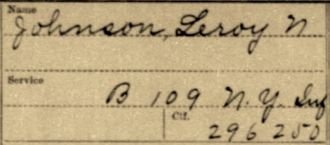 Name
Johnson, Leroy N
Service
B 109 N.Y. Inf
Ctf.
296 250